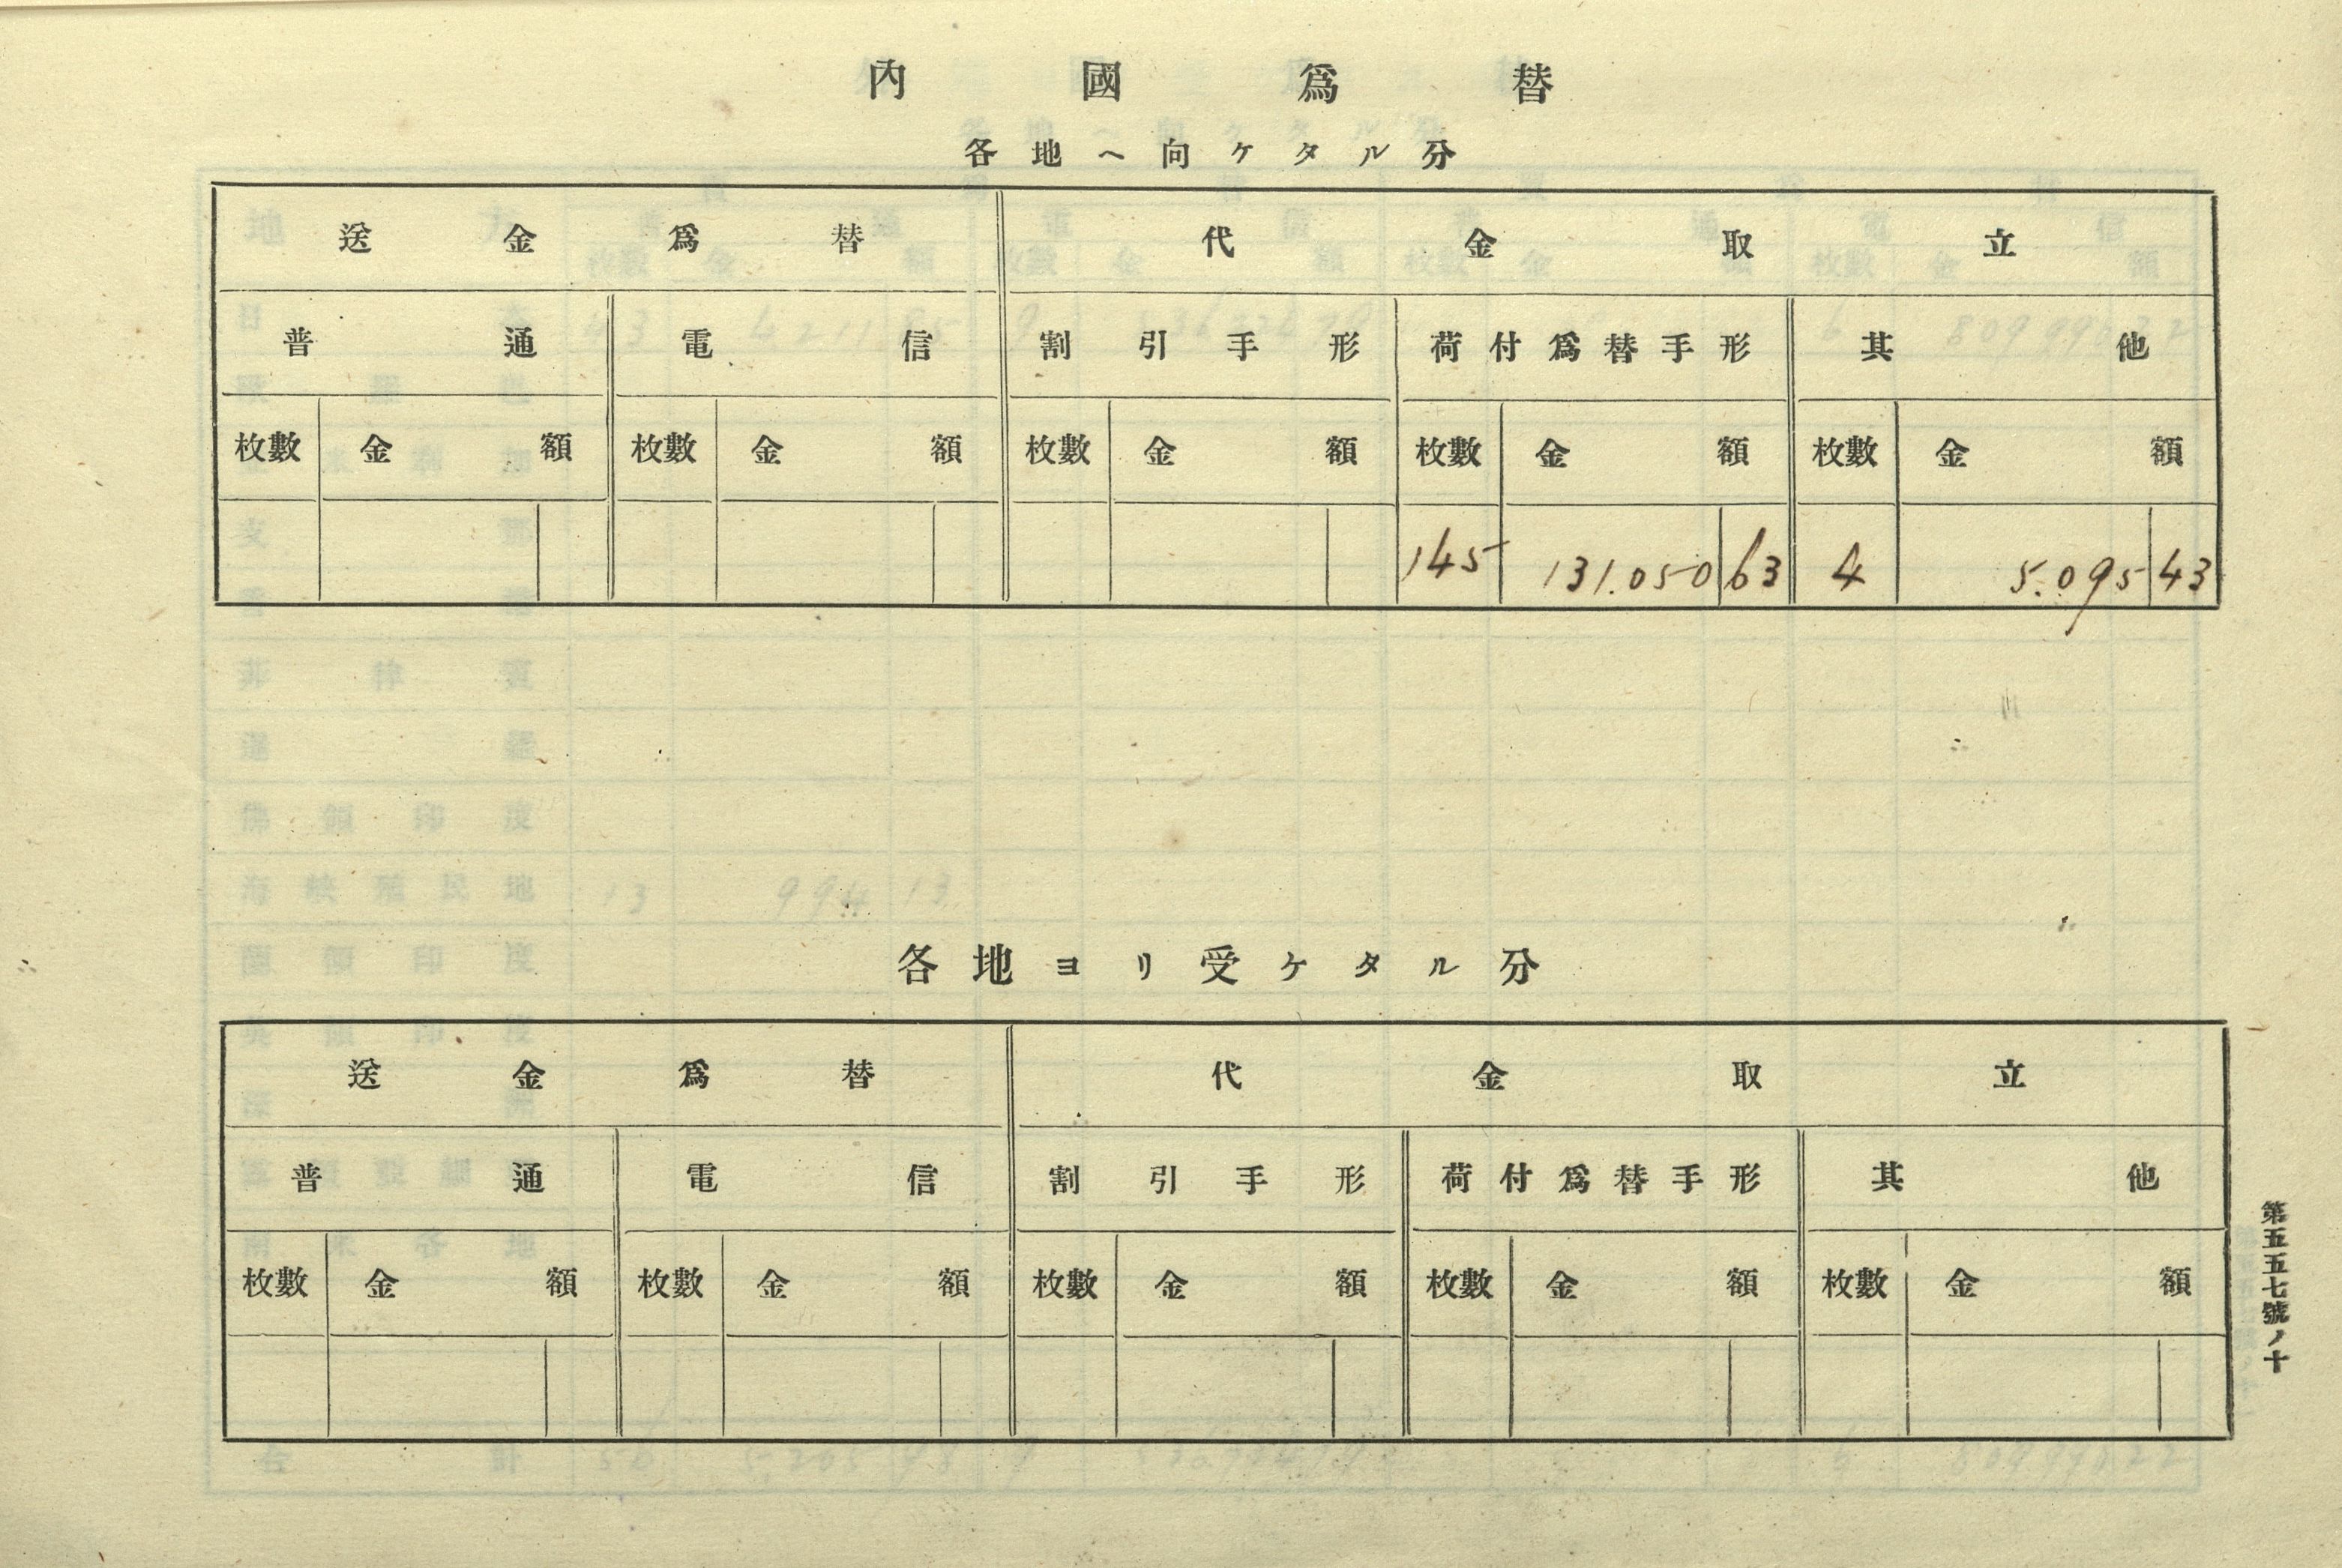 內國爲替
各地ヘ向ケタル分
送金爲替 代金取立
普通 電信 割引手形 荷付爲替手形 其他
枚數 金額 枚數 金額 枚數 金額 枚數 金額 枚數 金額
145 131.050 63 4 5.095 43
各地ヨリ受ケタル分
送金爲替 代金取立
普通 電信 割引手形 荷付爲替手形 其他
枚數 金額 枚數 金額 枚數 金額 枚數 金額 枚數 金額
第五五七號ノ十